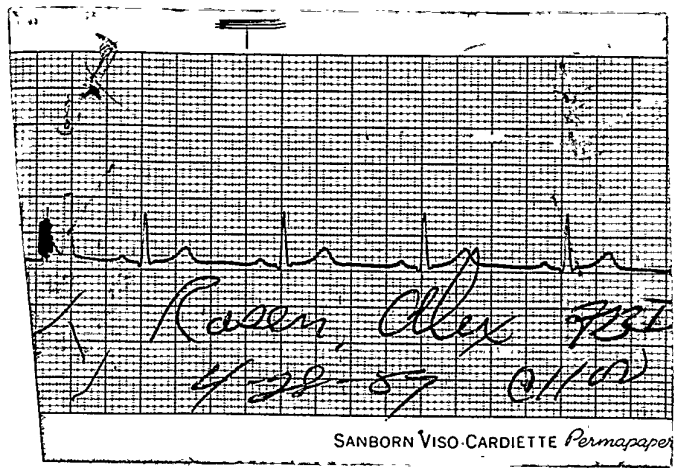 Rosen, Alex FBI
4-28-57 @1100
SANBORN VISO-CARDIETTE Permapaper